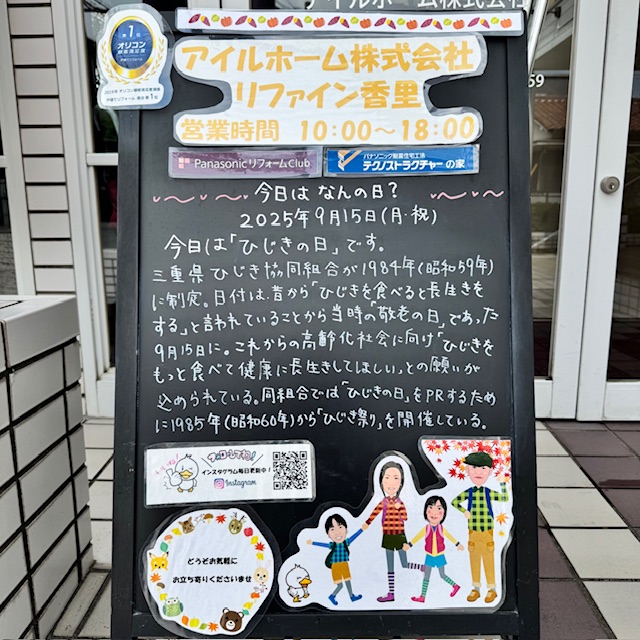 アイルホーム株式会社
第1位
オリコン
顧客満足度
アイルホーム株式会社
リファイン香里
営業時間 10:00～18:00
Panasonic リフォーム Club
パナソニック耐震住宅工法
テクノストラクチャーの家
59
今日は なんの日?
2025年9月15日(月・祝)
今日は「ひじきの日」です。
三重県ひじき協同組合が1984年(昭和59年)
に制定。日付は、昔から「ひじきを食べると長生きを
する」と言われていることから当時の「敬老の日」であった
9月15日に。これからの高齢化社会に向け「ひじきを
もっと食べて健康に長生きしてほしい」との願いが
込められている。同組合では「ひじきの日」をPRするため
に1985年(昭和60年)から「ひじき祭り」を開催している。
インスタグラム毎日更新中!
Instagram
どうぞお気軽に
お立ち寄りくださいませ